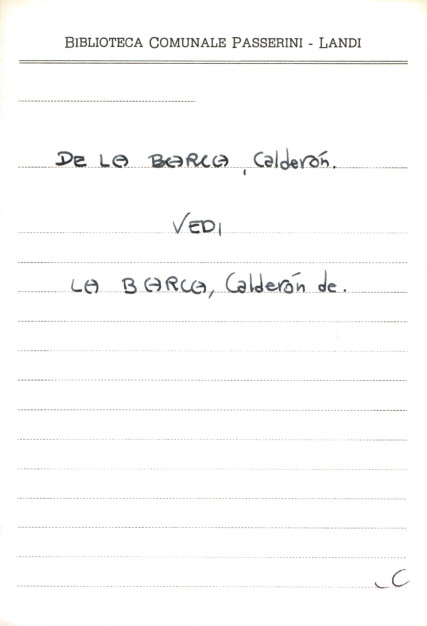 BIBLIOTECA COMUNALE PASSERINI - LANDI
DE LA BARCA, Calderón.
VEDI
LA BARCA, Calderón de.